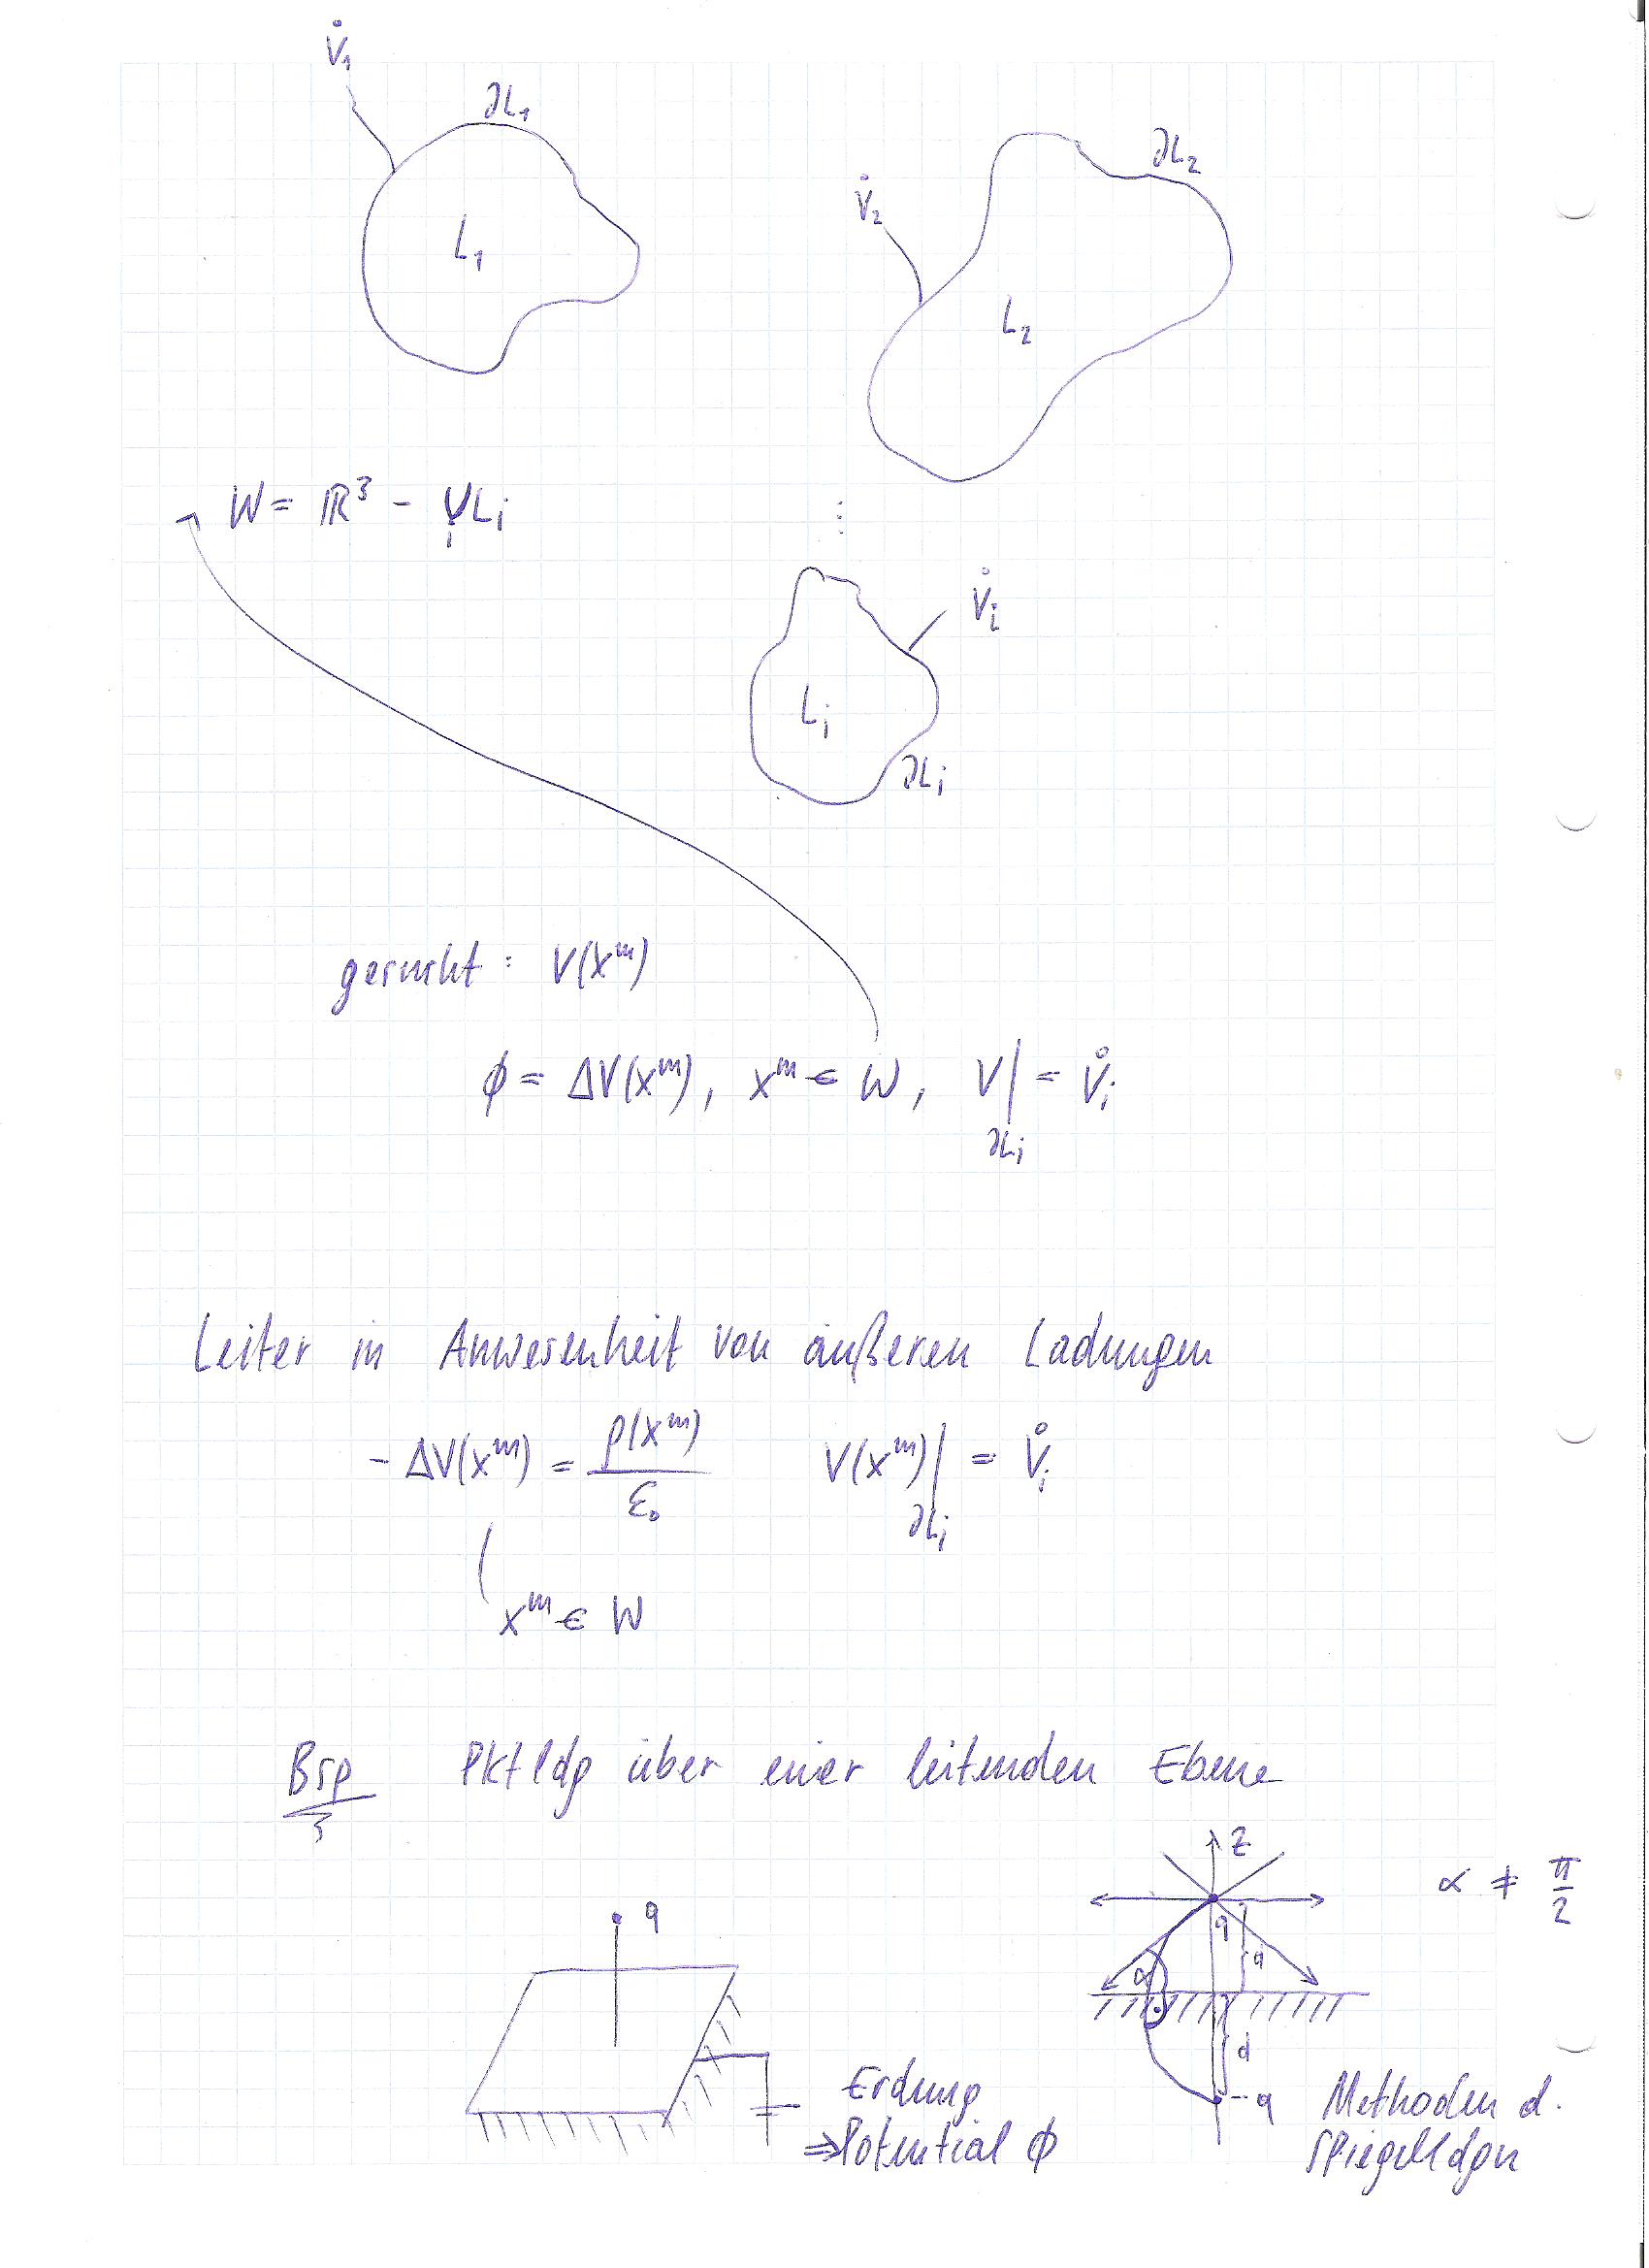 V̊₁
∂L₁
∂L₂
V̊₂
L₁
L₂
W = ℝ³ - ⋃ᵢ Lᵢ
⋮
V̊ᵢ
Lᵢ
∂Lᵢ
gesucht : V(xᵐ)
ϕ = ΔV(xᵐ), xᵐ ∈ W, V|∂Lᵢ = V̊ᵢ
Leiter in Anwesenheit von äußeren Ladungen
- ΔV(xᵐ) = ρ(xᵐ)/ε₀ V(xᵐ)|∂Lᵢ = V̊ᵢ
xᵐ ∈ W
Bsp Pktldg über einer leitenden Ebene
z
α ≠ π/2
q
q
d
α
d
-q
Erdung
⇒Potential ϕ
Methoden d.
Spiegelldgn